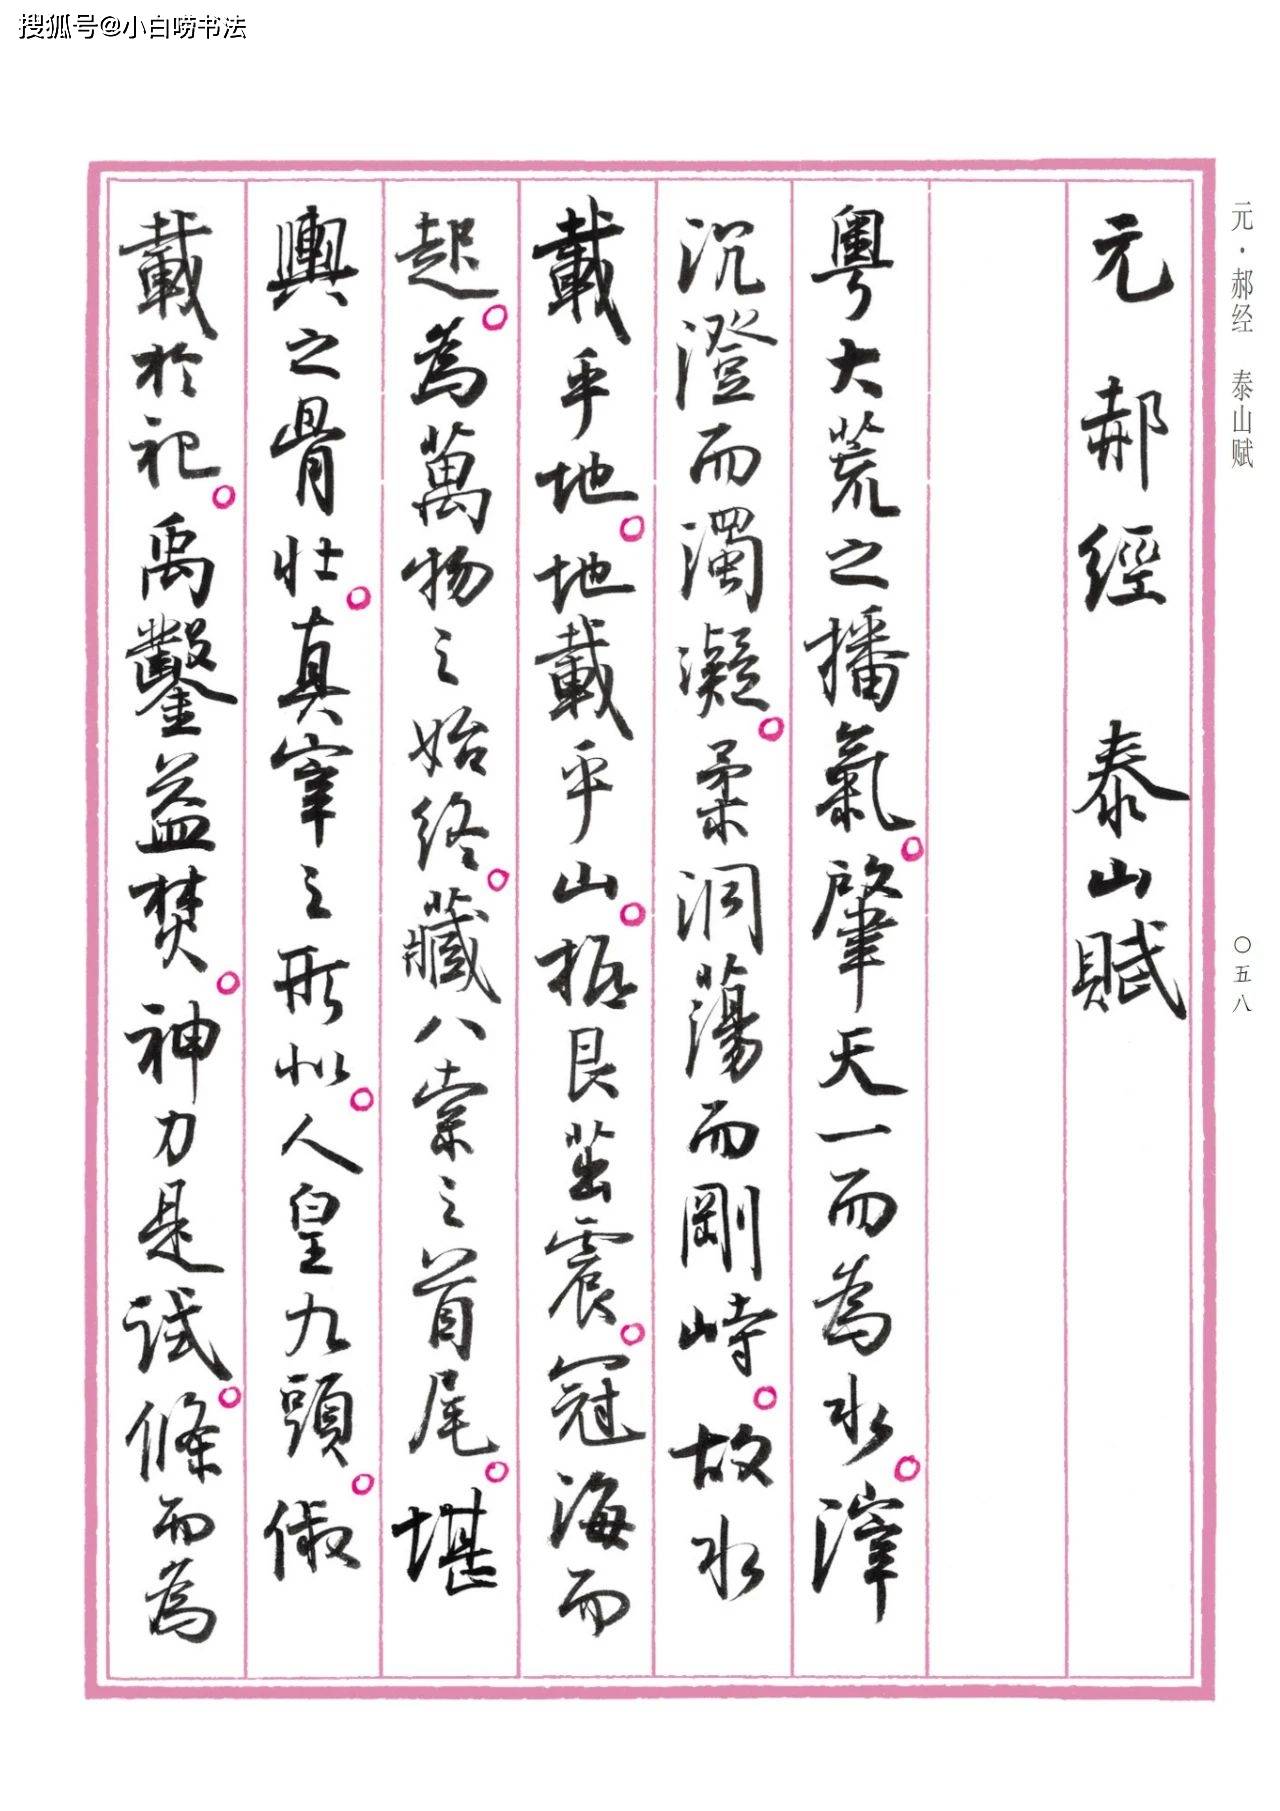 搜狐号@小白唠书法
元·郝经 泰山赋
〇五八
元 郝經 泰山賦
粵大荒之播氣。肇天一而為水。滓
沉澄而濁凝。柔洞蕩而剛峙。故水
載乎地。地載乎山。振艮茁震。冠海而
起。為萬物之始終。藏八索之首尾。堪
輿之骨壯。真宰之形似。人皇九頭。俶
載於祀。禹鑿益焚。神力是試。條而為